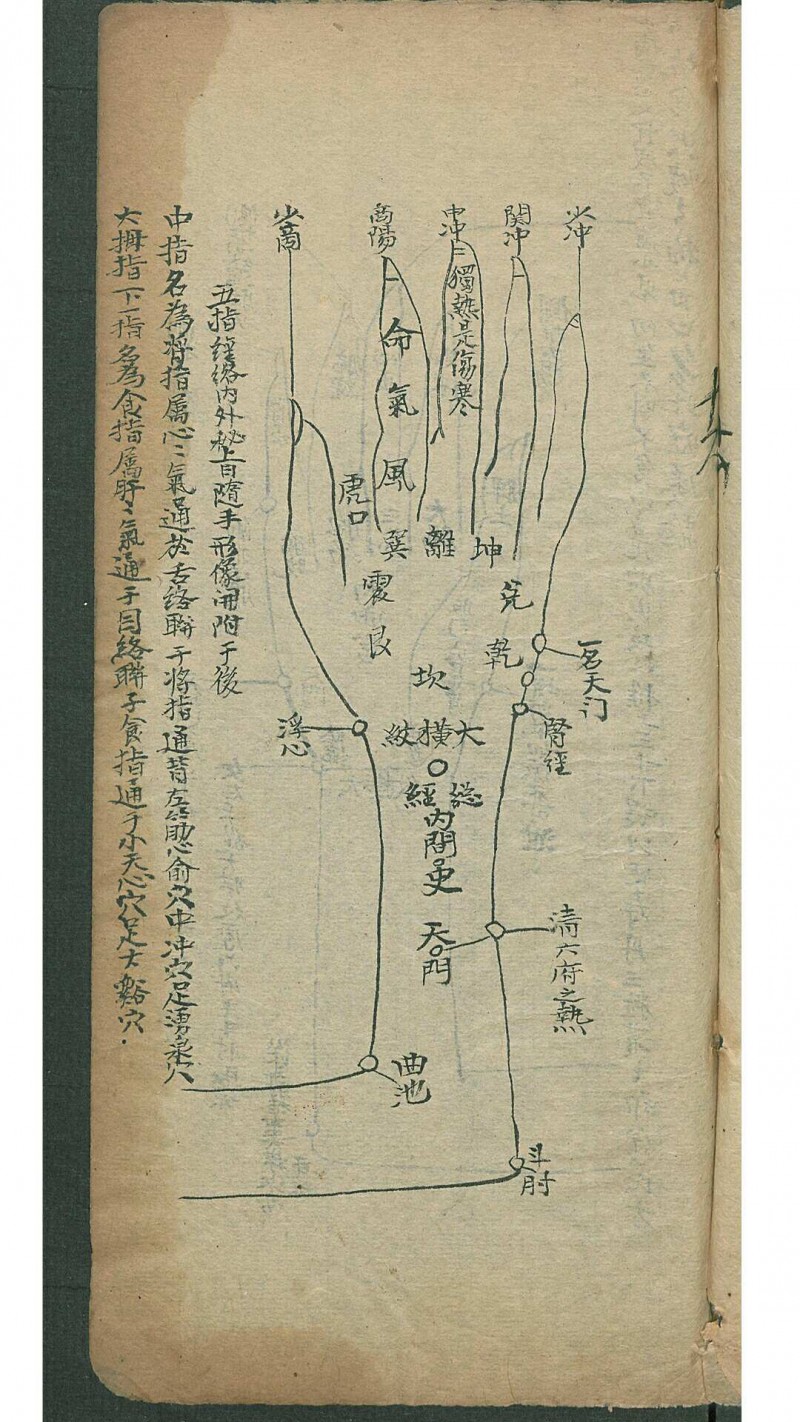 少沖
関沖
中冲
商陽
少商
獨熱是傷寒
命氣風
虎口
坤
離
巽
震
艮
兌
乾
坎
一名天门
腎經
浮心
大橫紋
総經
內間史
天門
清六府之熱
曲池
斗肘
五指經絡內外秘旨隨手形像開附于後
中指名為將指属心〻氣通於舌絡聯于將指通背左筋心俞穴中冲穴足湧泉穴
大拇指下一指名為食指属肝〻氣通于目絡聯于食指通于小天心穴足大谿穴